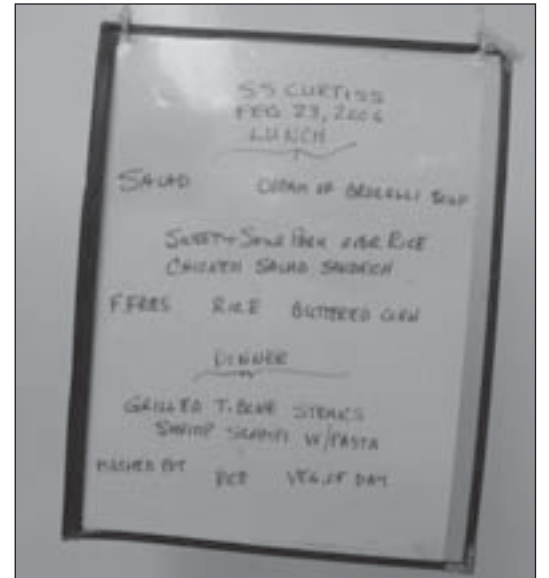 SS CURTISS
FEB 23, 2006
LUNCH
SALAD CREAM OF BROCCLLI SOUP
SWEET + SOUR PORK OVER RICE
CHICKEN SALAD SANDWICH
F.FRIES RICE BUTTERED CORN
DINNER
GRILLED T.BONE STEAKS
SHRIMP SCAMPI W/PASTA
MASHED POT RICE VEG. OF DAY